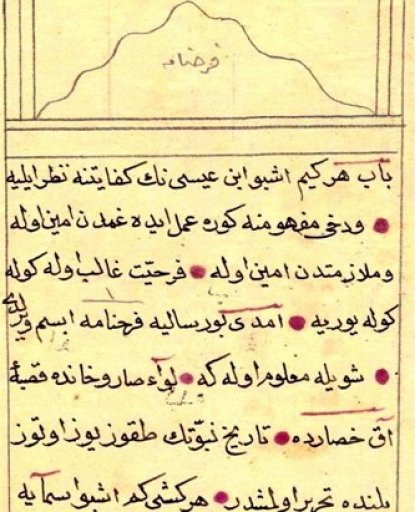 فرخنامه
باب هر كيم اشبو ابن عيسى نك كفايتنه نظر ايليه
ودخى مفهومنه كوره عمل ايده غمدن امين اوله
وملازمتدن امين اوله فرحيت غالب اوله كوله
كوله يوريه امدى بو رساليه فرخنامه ايسم ويردى
شويله معلوم اوله كه لوآء صاروخانده قصبۀ
آق حصارده تاريخ نبوتك طقوز يوز اوتوز
يلنده تحرير اولمشدر هر كشى كم اشبو اسمآيه